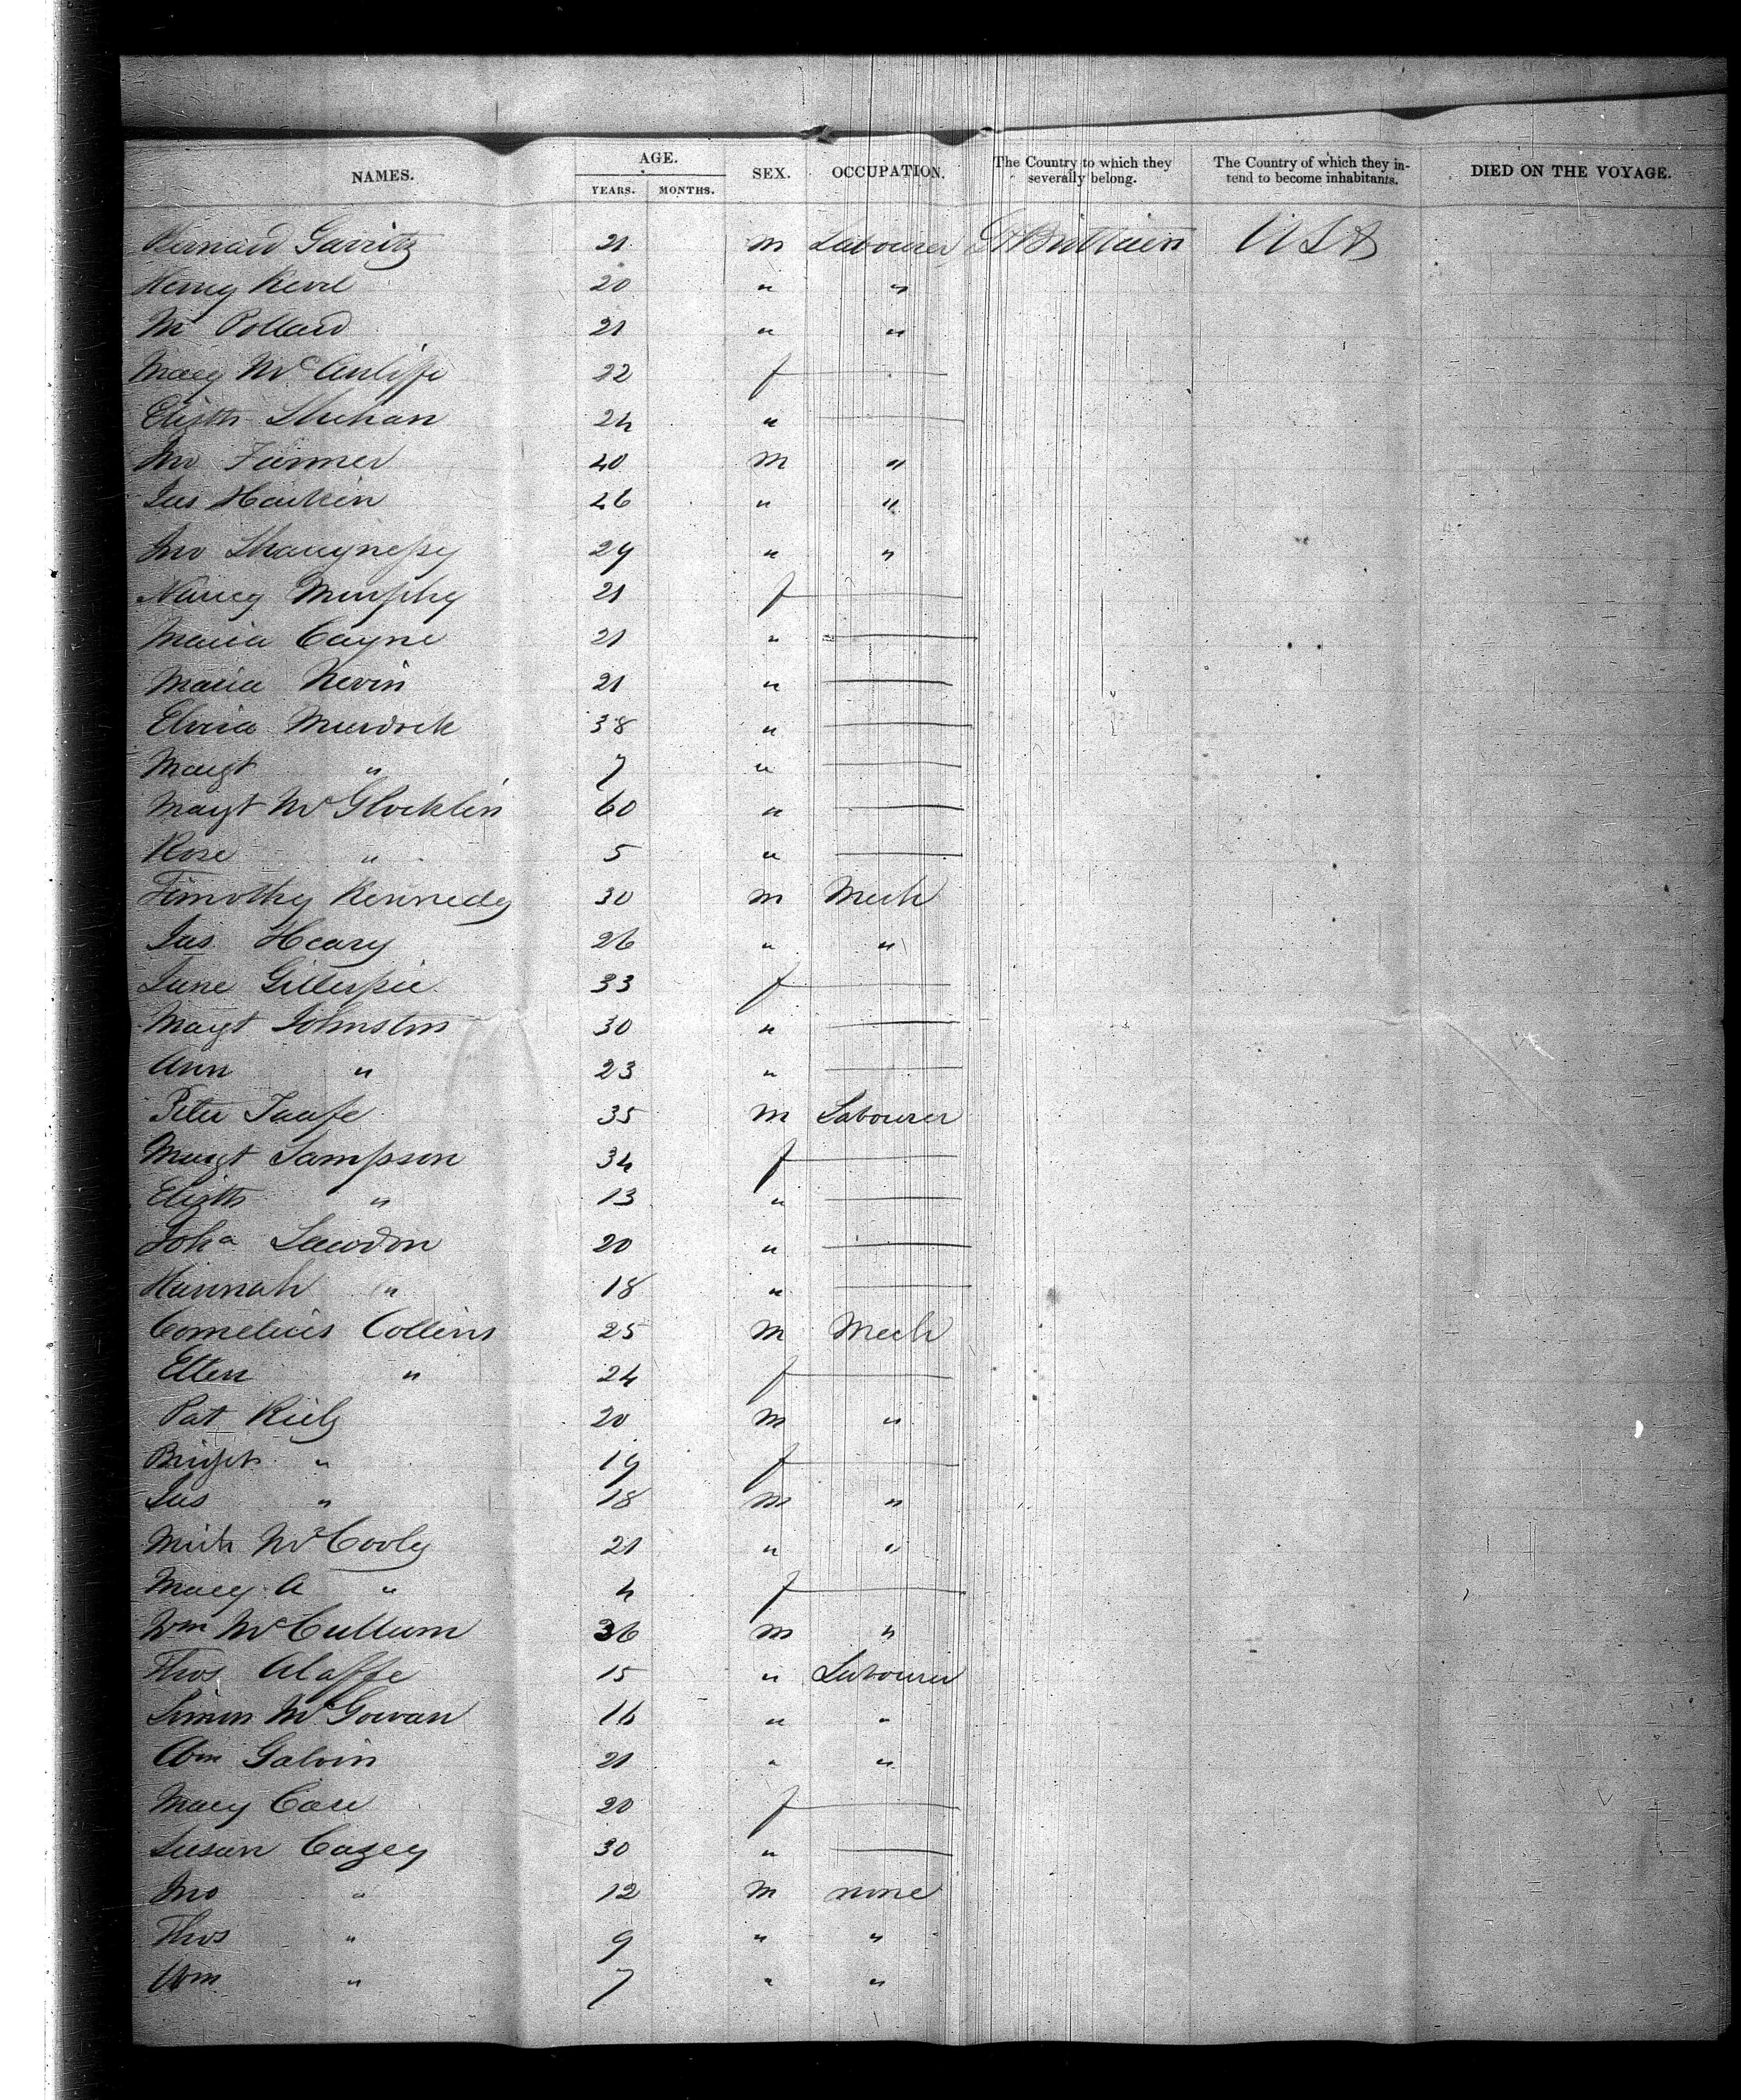 NAMES. AGE. SEX. OCCUPATION. The Country to which they severally belong. The Country of which they intend to become inhabitants. DIED ON THE VOYAGE.
YEARS. MONTHS.
Bernard Garrity 21 m Labourer Gt Brittain USA
Henry 20 " "
M Pollard 21 " "
Mary McAuliffe 22 f —
Elizth Shehan 24 " —
Jno Farmer 40 m "
Jas Harkin 26 " "
Jno Shaugnessy 29 " "
Nancy Murphy 21 f —
Maria Coyne 21 " —
Maria Nevin 21 " —
Eliza Murdock 38 " —
Margt " 7 " —
Margt McGlocklin 60 " —
Rose " 5 " —
Timothy Kennedy 30 m Mech
Jas Heary 26 " "
Jane Gillespie 33 f —
Margt Johnston 30 " —
Ann " 23 " —
Peter Taafe 35 m Labourer
Margt Sampson 34 f —
Elizth " 13 " —
Joha 20 " —
Hannah " 18 " —
Cornelius Collins 25 m Mech
Ellen " 24 f —
Pat Riely 20 m "
Bridget " 19 f —
Jas " 18 m "
Mich McCooly 21 " "
Mary A " 4 f —
Wm McCullum 36 m "
Thos 15 " Labourer
Simon McGowan 16 " "
Wm Galvin 21 " "
Mary Case 20 f —
Susan Cazey 30 " —
Jno " 12 m none
Thos " 9 " "
Wm " 7 " "